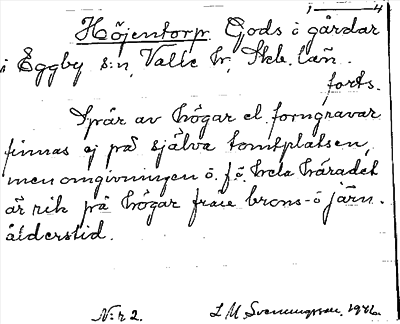 Höjentorp. Gods i gårdar
i Eggby s:n, Valle hr, Skb. län.
forts.
Spår av högar el. forngravar
finnas ej på själva tomtplatsen,
men omgivningen o. f. ö. hela häradet
är rik på högar från brons- o järn-
ålderstid.
N:r 2. L. M. Svenungsson, 1946.